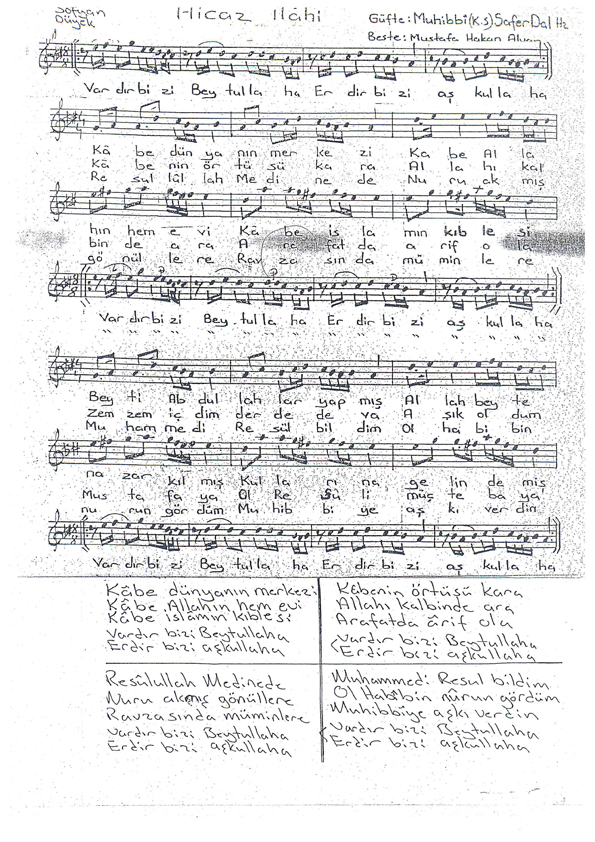 Sofyan
Düyek
Hicaz İlâhi
Güfte: Muhibbî (K.S) Safer Dal Hz
Beste: Mustafa Hakan Alvan
Var dır bi zi Bey tul la ha Er dir bi zi aş kul la ha
Kâ be dün ya nın mer ke zi Ka be Al lâ
Kâ be nin ör tü sü ka ra Al la hı kal
Re sul lûl lah Me di ne de Nu ru ak mış
hın hem e vi Kâ be is la mın kıb le si
bin de a ra A ra fat da a rif o la
gö nül le re Rav za sın da mü min le re
Var dır bi zi Bey tul la ha Er dir bi zi aş kul la ha
" " " " " " " " " " " " " "
Bey ti Ab dul lah lar yap mış Al lah bey te
Zem zem iç dim der de de va A şık ol dum
Mu ham me di Re sül bil dim Ol ha bi bin
na zar kıl mış Kul la rı na ge lin de miş
Mus ta fa ya Ol Re sü li müç te ba ya
nu run gör düm Mu hib bi ye aş kı ver din
Var dır bi zi Bey tul la ha Er dir bi zi aş kul la ha
Kâbe dünyanın merkezi
Kâbe Allahın hem evi
Kâbe islâmın kıblesi
Vardır bizi Beytullaha
Erdir bizi aşkullaha
Kâbenin örtüsü kara
Allahı kalbinde ara
Arafatda ârif ola
Vardır bizi Beytullaha
Erdir bizi aşkullaha
Resûlullah Medinede
Nuru akmış gönüllere
Ravzasında müminlere
Vardır bizi Beytullaha
Erdir bizi aşkullaha
Muhammedi Resul bildim
Ol Habîbin nûrun gördüm
Muhibbîye aşkı verdin
Vardır bizi Beytullaha
Erdir bizi aşkullaha